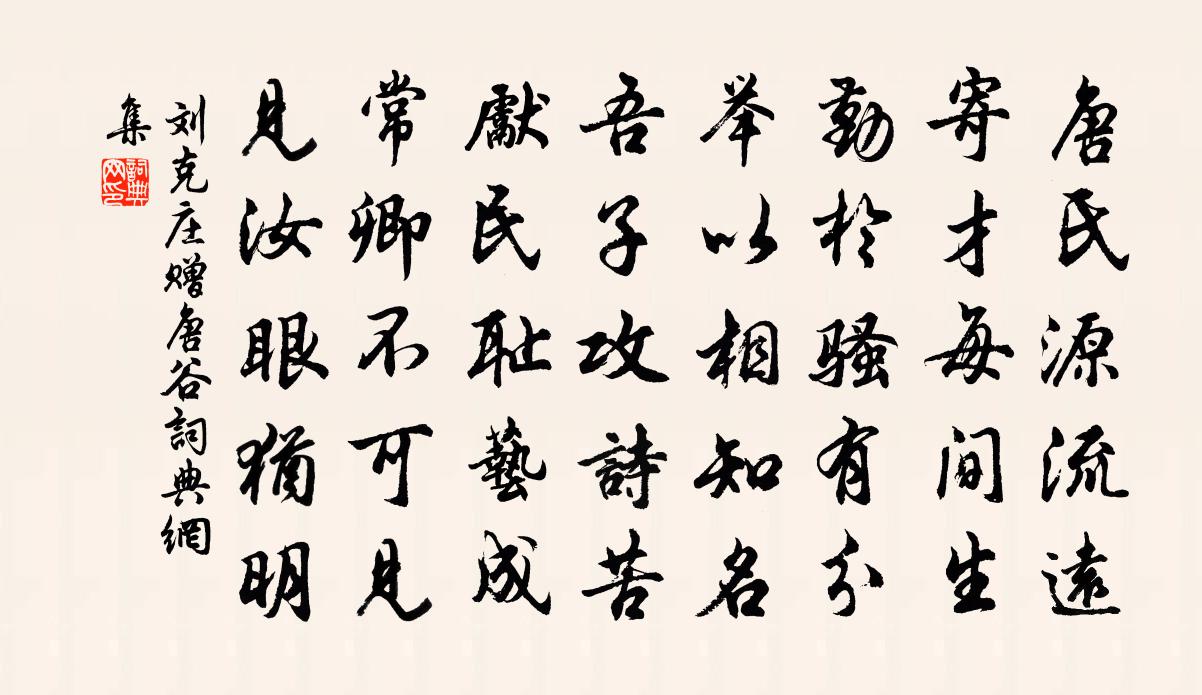 唐氏源流遠
寄才每间生
勤於骚有分
举以相知名
吾子攻詩苦
獻民耻藝成
常卿不可見
見汝眼猶明
刘克庄赠唐谷詞典網
集
詞典
网印